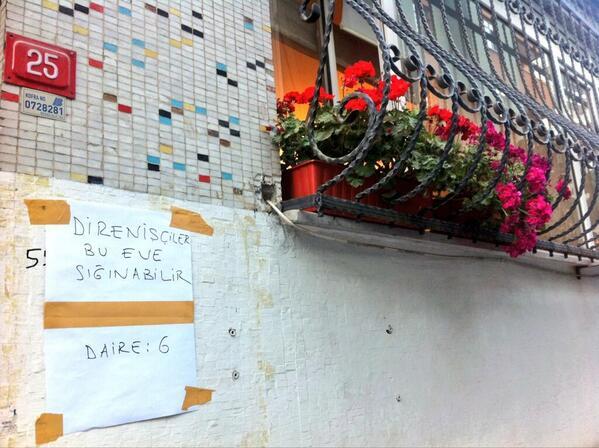 25
KOFRA NO
0728281
DİRENİŞÇİLER
BU EVE
SIĞINABİLİR
DAİRE: 6